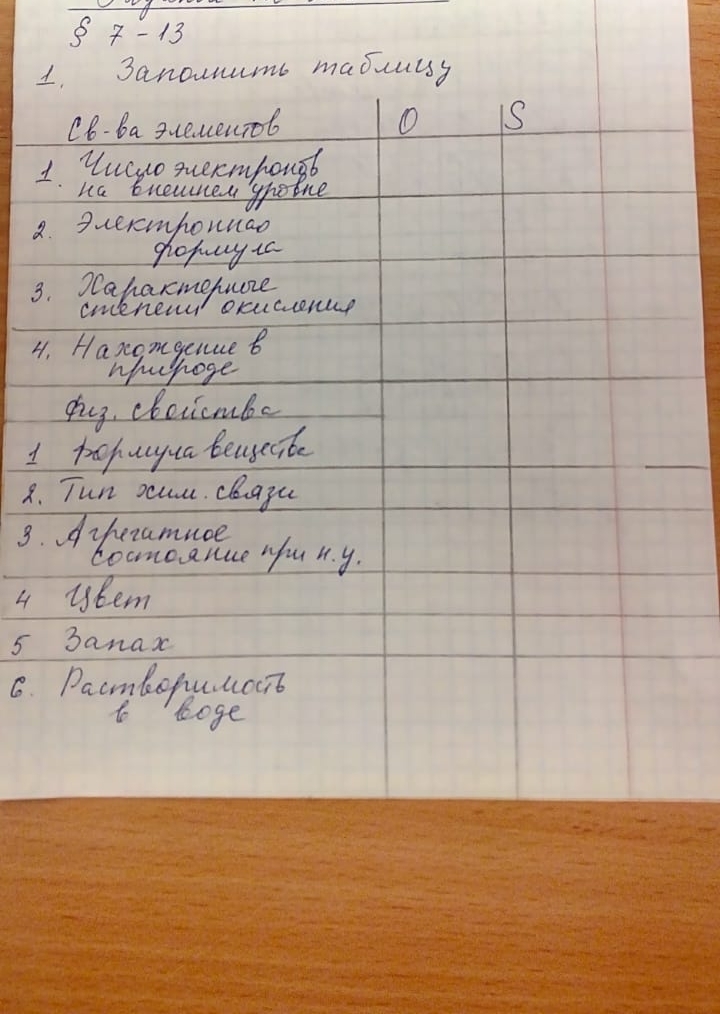 § 7-13
1. Заполнить таблицу
Св-ва элементов O S
1. Число электронов
на внешнем уровне
2. Электронная
формула
3. Характерные
степени окисления
4. Нахождение в
природе
Физ. свойства
1 Формула вещества
2. Тип хим. связи
3. Агрегатное
состояние при н.у.
4 Цвет
5 Запах
6. Растворимость
в воде